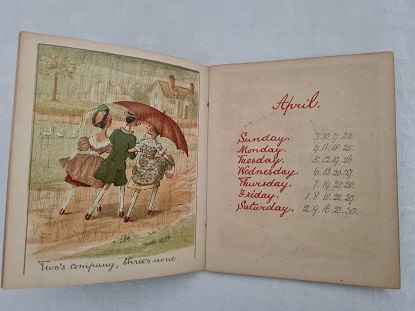 Two's company, three's none.
April.
Sunday. 3.10.17.24.
Monday. 4.11.18.25.
Tuesday. 5.12.19.26.
Wednesday. 6.13.20.27.
Thursday. 7.14.21.28.
Friday. 1.8.15.22.29.
Saturday. 2.9.16.23.30.